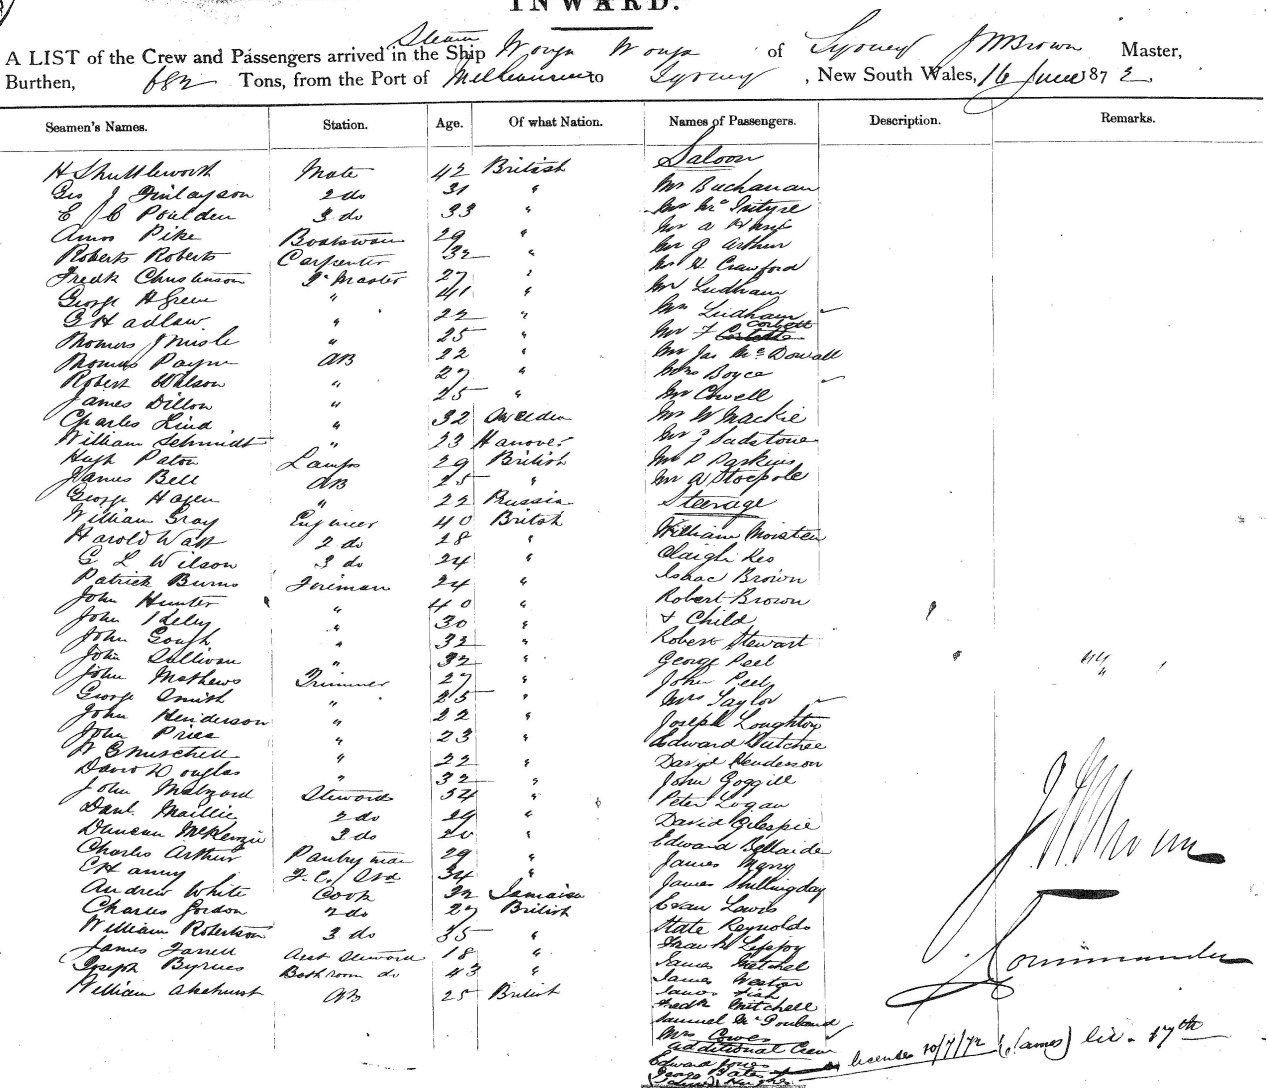 INWARD.
A LIST of the Crew and Passengers arrived in the Steam Ship Wonga Wonga of Sydney J M Brown Master,
Burthen, 682 Tons, from the Port of Melbourne to Sydney, New South Wales, 16 June 1872.
Seamen's Names. Station. Age. Of what Nation. Names of Passengers. Description. Remarks.
Saloon
H Shuttleworth Mate 42 British Mr Buchanan
Geo J Finlayson 2 do 31 " Mr McIntyre
E C Poulden 3 do 33 " Mr A
Amos Pike Boatswain 29 " Mr G Arthur
Roberts Roberts Carpenter 32 " Mr H Crawford
Fredk Christenson Qr Master 27 " Mr Ludham
George H Green " 41 " Mrs Ludham
G Hadlaw " 22 " Mr F Corbett
Thomas J Nisle " 25 " Mr Jas McDowall
Thomas Payne AB 22 " Mrs Boyce
Robert Wilson " 27 " Mr Cowell
James Dillon " 25 " Mr W Mackie
Charles Lind " 32 Sweden Mr J Sadstone
William Schmidt " 23 Hanover Mr P Parkins
Hugh Paton Lamps 29 British Mr A Stoepole
James Bell AB 25 " Steerage
George Hagen " 22 Russia
William Gray Engineer 40 British William Moisten
Harold Watt 2 do 28 "
G L Wilson 3 do 24 " Isaac Brown
Patrick Burns Foreman 24 " Robert Brown
John Hunter " 40 " & Child
John Idely " 30 " Robert Stewart
John Gough " 32 " George Peel
John Sullivan " 32 " John Peel
John Mathews Trimmer 27 " Mrs Taylor
George Smith " 25 " Joseph Loughton
John Henderson " 22 " Edward Dutchee
John Price " 23 " David Henderson
W G Mitchell " 22 " John Goggill
David Douglas " 32 " Peter Logan
John Malzard Steward 54 " David Gilespie
Danl Maillie 2 do 29 " Edward Bellaide
Duncan McKenzie 3 do 20 " James Merry
Charles Arthur Pantryman 29 " James Shillingday
E Hanny F.C. Std 34 " Evan Lewis
Andrew White Cook 32 Jamaica Kate Reynolds
Charles Gordon 2 do 27 British Frank Lefroy
William Robertson 3 do 35 " James Mitchel
James Farrell Asst Steward 18 " James Weston
Joseph Byrnes Bathroom do 43 " James Fish
William Akehurst AB 25 British Fredk Mitchell
Samuel McPouland
Mrs Cowes
Additional Crew
Edward Jones
George Bates
James Hughes
licenses 10/7/72 (James) lic. 17th
J M Brown
Commander